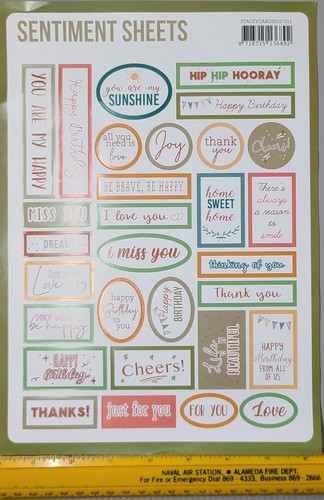 SENTIMENT SHEETS
STACEYCARDS010-051
8 718715 136992
YOU ARE MY HAPPY
Happy Birthday
you are my
SUNSHINE
HIP HIP HOORAY
Happy Birthday
all you
need is
love
Joy
thank
you
Cheers!
BE BRAVE, BE HAPPY
home
SWEET
home
There's
always
a reason
to
smile
MISS YOU
I love you
DREAM
i miss you
Love
thinking of you
happy
birthday
to
you
Happy
BIRTHDAY
Thank you
DON'T WORRY
be happy
Life is
BEAUTIFUL
HAPPY
Birthday
FROM ALL
OF US
HAPPY
Birthday
Cheers!
THANKS!
just for you
FOR YOU
Love
NAVAL AIR STATION, ALAMEDA FIRE DEPT.
For Fire or Emergency Dial 869 - 4333, Business 869 - 2666